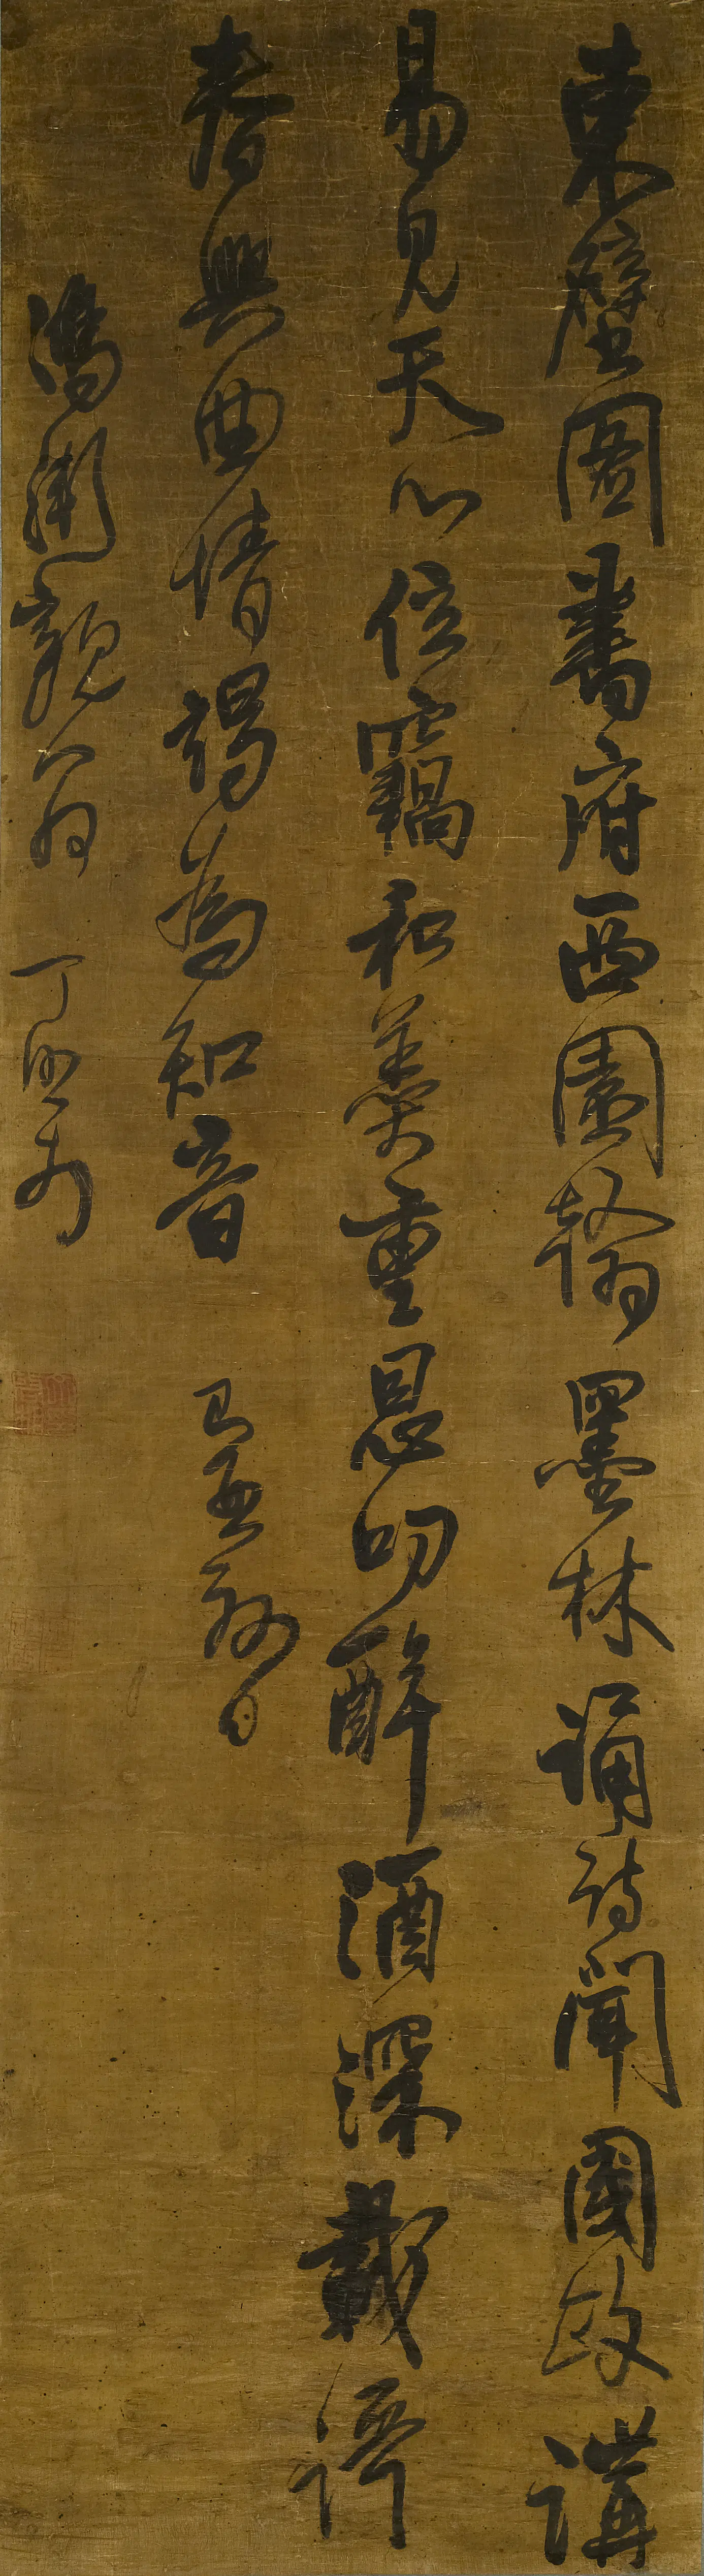 東壁圖書府西園翰墨林誦詩聞國政講
易見天心位竊和羹重恩叨醉酒深載
春興曲情竭為知音
親翁 丁